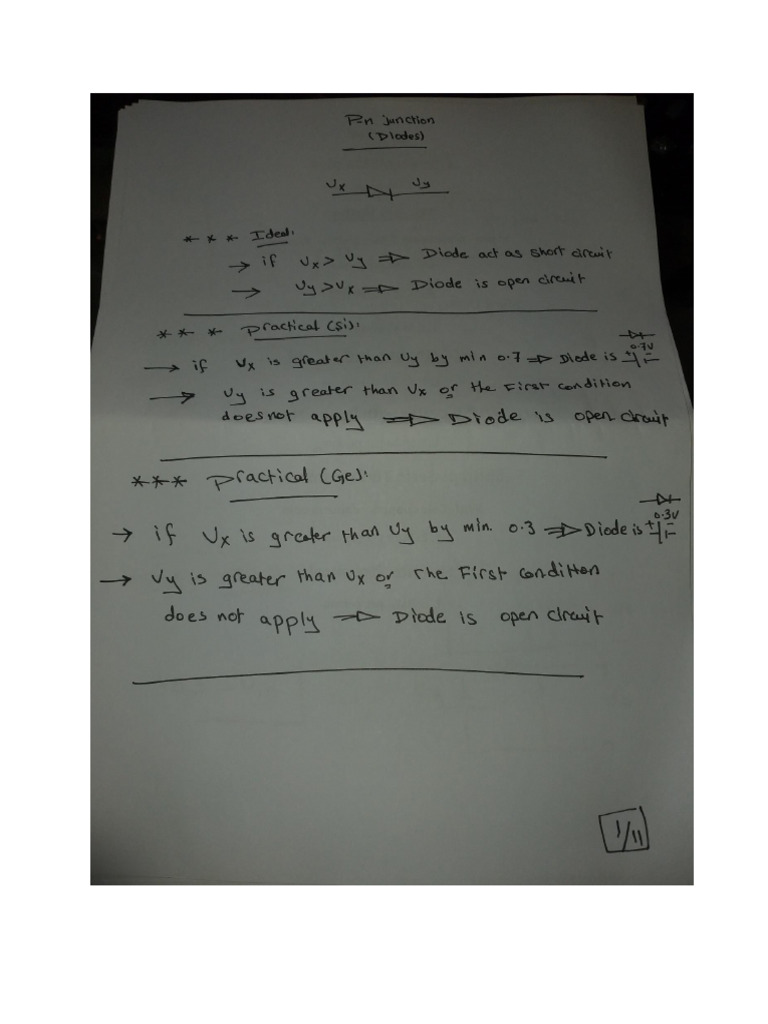 P-n junction
(Diodes)
Vx Vy
*** Ideal:
→ if Vx > Vy ⇒ Diode act as short circuit
→ Vy > Vx ⇒ Diode is open circuit
*** Practical (Si):
→ if Vx is greater than Vy by min 0.7 ⇒ Diode is 0.7V + -
→ Vy is greater than Vx or the First condition
does not apply ⇒ Diode is open circuit
*** Practical (Ge):
→ if Vx is greater than Vy by min. 0.3 ⇒ Diode is 0.3V + -
→ Vy is greater than Vx or The First condition
does not apply ⇒ Diode is open circuit
1/11